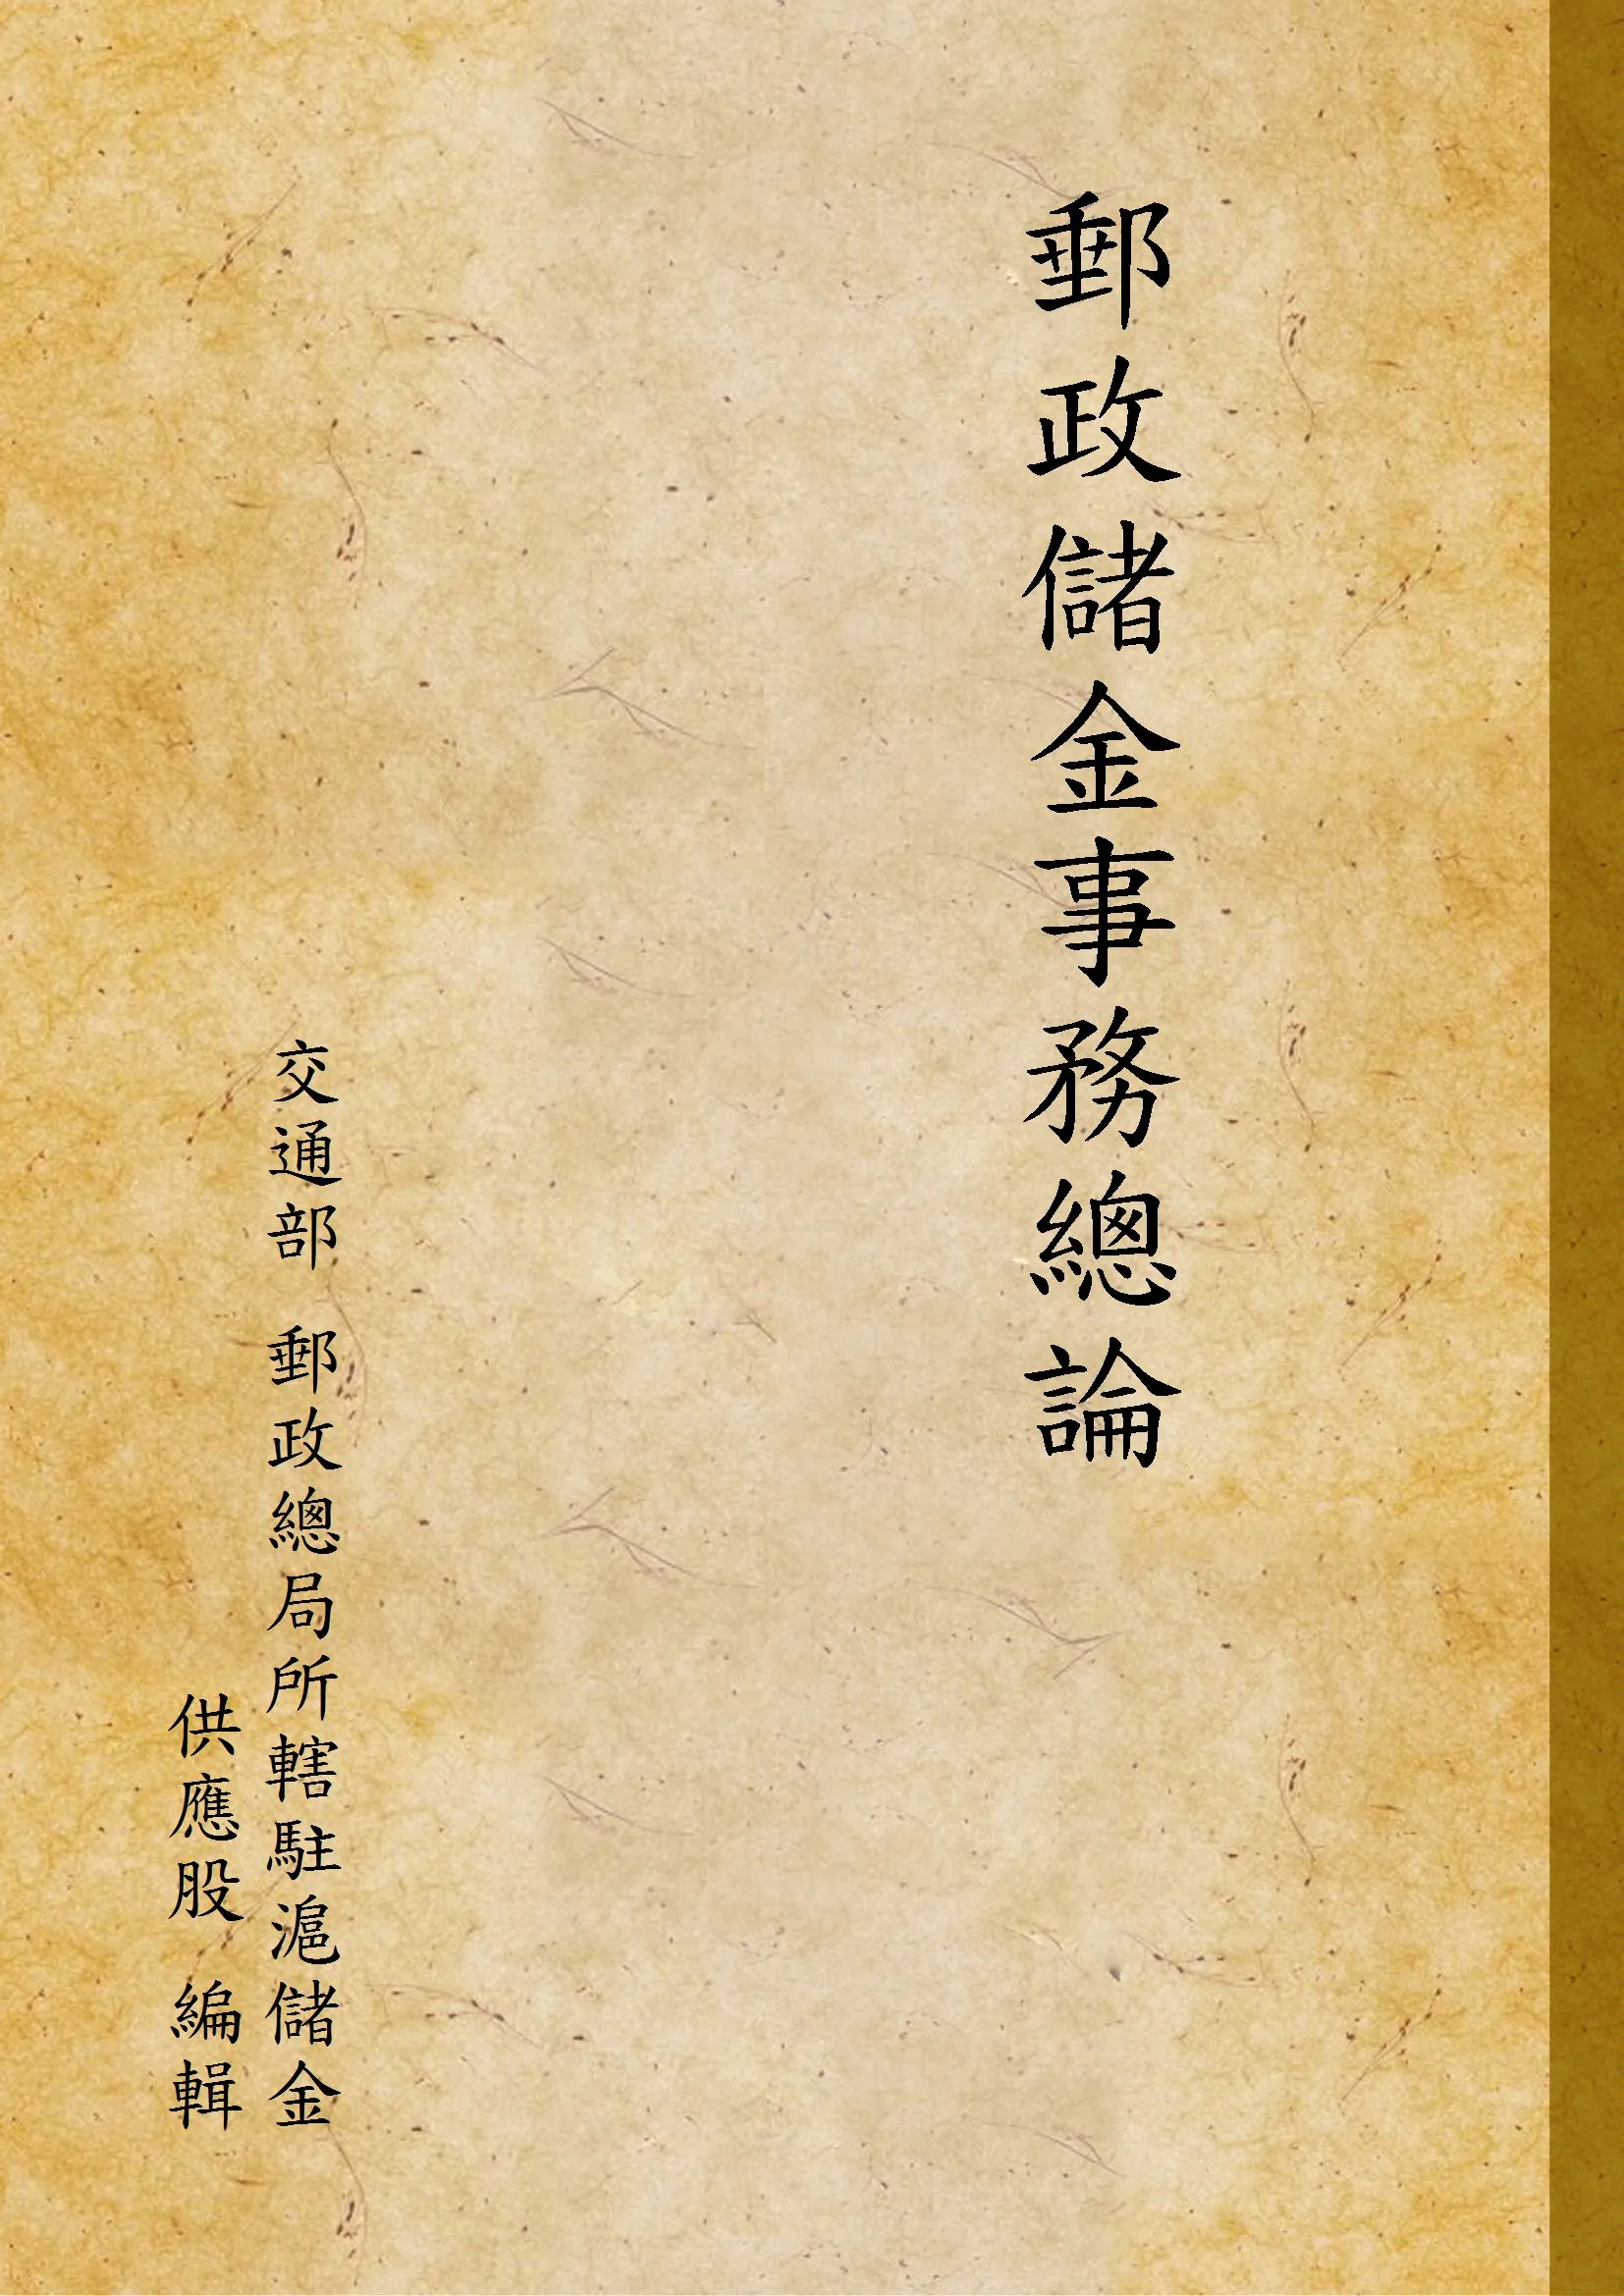 郵政儲金事務總論
交通部 郵政總局所轄駐滬儲金
供應股 編輯